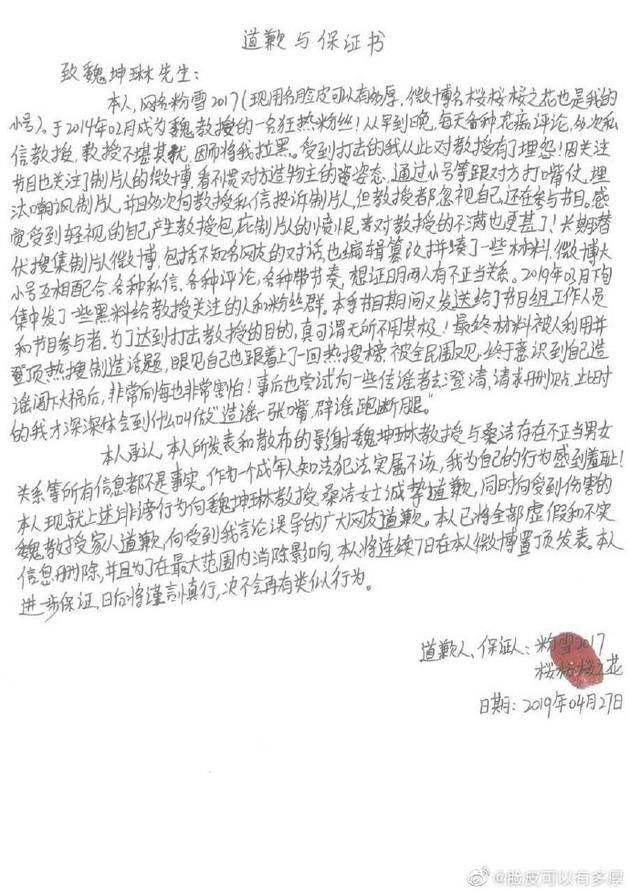 道歉与保证书
致魏坤琳先生：
本人,网名粉雪2017(现用名脸皮可以有多厚,微博名桜桜桜之花也是我的
小号)。于2014年02月成为魏教授的一名狂热粉丝!从早到晚,每天各种花痴评论,多次私
信教授,教授不堪其扰,因而将我拉黑。受到打击的我从此对教授有了埋怨!因关注
节目也关注了制片人的微博,看不惯对方造物主的姿态,通过小号等跟对方打嘴仗,埋
汰嘲讽制片人,并且多次向教授私信投诉制片人,但教授都忽视自己,还在参与节目。感
觉受到轻视的自己,产生教授包庇制片人的愤恨,来对教授的不满也更甚了!长期潜
伏搜集制片人微博,包括不知名网友的对话,也编辑篡改拼凑了一些材料,微博大
小号互相配合,各种私信,各种评论,各种带节奏,想证明两人有不正当关系。2019年02月下旬
集中发了一些黑料给教授关注的人和粉丝群。本季节目期间又发送给了节目组工作人员
和节目参与者。为了达到打击教授的目的,真可谓无所不用其极!最终材料被人利用并
登顶热搜制造话题,眼见自己也跟着上了一回热搜榜被全民围观,终于意识到自己造
谣闯下大祸后,非常后悔也非常害怕!事后也尝试向一些信谣者去澄清,请求删贴,此时
的我才深深体会到什么叫做“造谣一张嘴,辟谣跑断腿。”
本人承认,本人所发表和散布的影射魏坤琳教授与桑洁存在不正当男女
关系等所有信息都不是事实。作为一个成年人知法犯法实属不该,我为自己的行为感到羞耻!
本人现就上述诽谤行为向魏坤琳教授、桑洁女士诚挚道歉,同时向受到伤害的
魏教授家人道歉,向受到我言论误导的广大网友道歉。本人已将全部虚假和不实
信息删除,并且为了在最大范围内消除影响,本人将连续7日在本人微博置顶发表。本人
进一步保证,日后将谨言慎行,决不会再有类似行为。
道歉人、保证人:粉雪2017
桜桜桜之花
日期:2019年04月27日
@脸皮可以有多厚